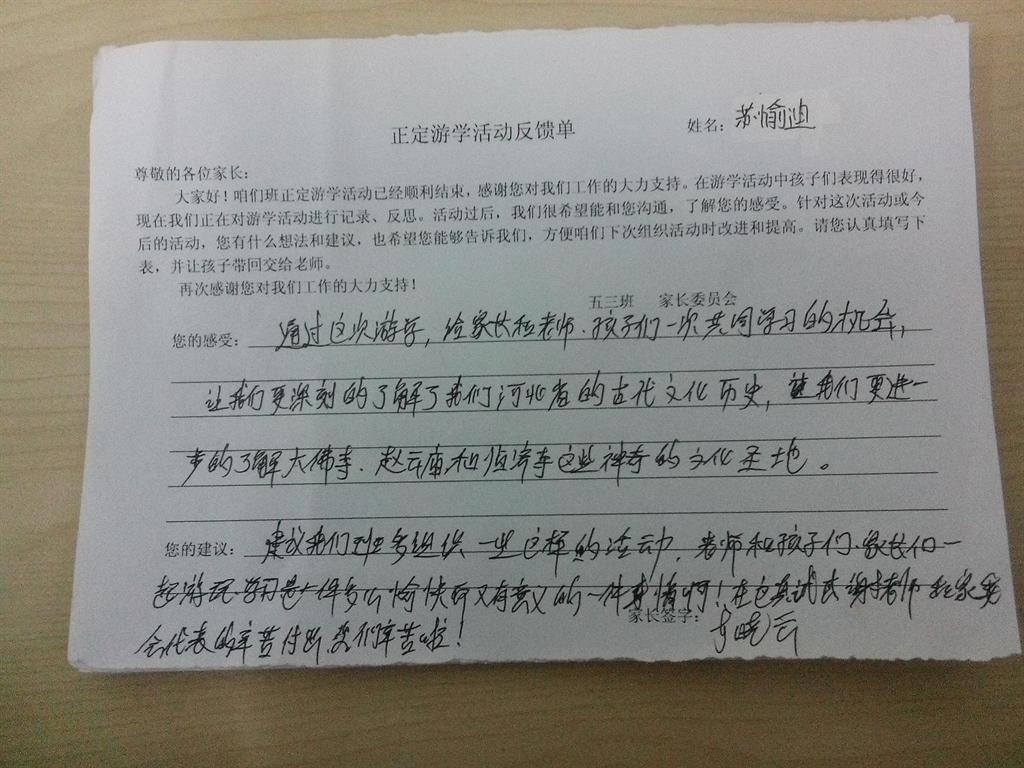 正定游学活动反馈单
姓名：苏愉迪
尊敬的各位家长：
大家好！咱们班正定游学活动已经顺利结束，感谢您对我们工作的大力支持。在游学活动中孩子们表现得很好，
现在我们正在对游学活动进行记录、反思。活动过后，我们很希望能和您沟通，了解您的感受。针对这次活动或今
后的活动，您有什么想法和建议，也希望您能够告诉我们，方便咱们下次组织活动时改进和提高。请您认真填写下
表，并让孩子带回交给老师。
再次感谢您对我们工作的大力支持！
五三班 家长委员会
您的感受：通过这次游学，给家长和老师、孩子们一次共同学习的机会，
让我们更深刻的了解了我们河北省的古代文化历史，让我们更进一
步的了解大佛寺、赵云庙和临济寺这些神奇的文化圣地。
您的建议：建议我们班多组织一些这样的活动，老师和孩子们、家长们一
起游玩、学习是一件多么愉快而又有意义的一件事情啊！在这真诚感谢老师和家委
会代表的辛苦付出，您们辛苦啦！
家长签字：晓云